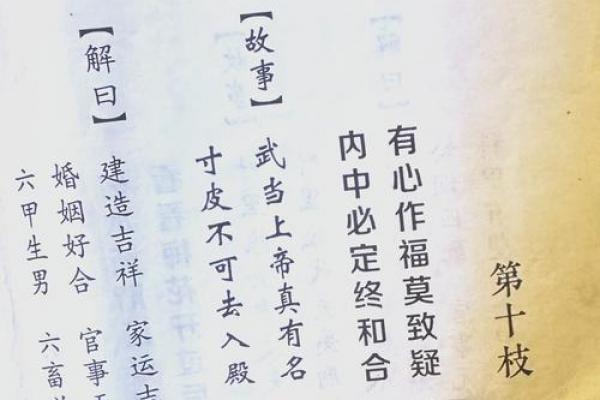 第十枝
有心作福莫致疑
内中必定终和合
【故事】
武当上帝真有名
寸皮不可去入殿
【解曰】
建造吉祥 家运吉
婚姻好合 官事
六甲生男 六畜